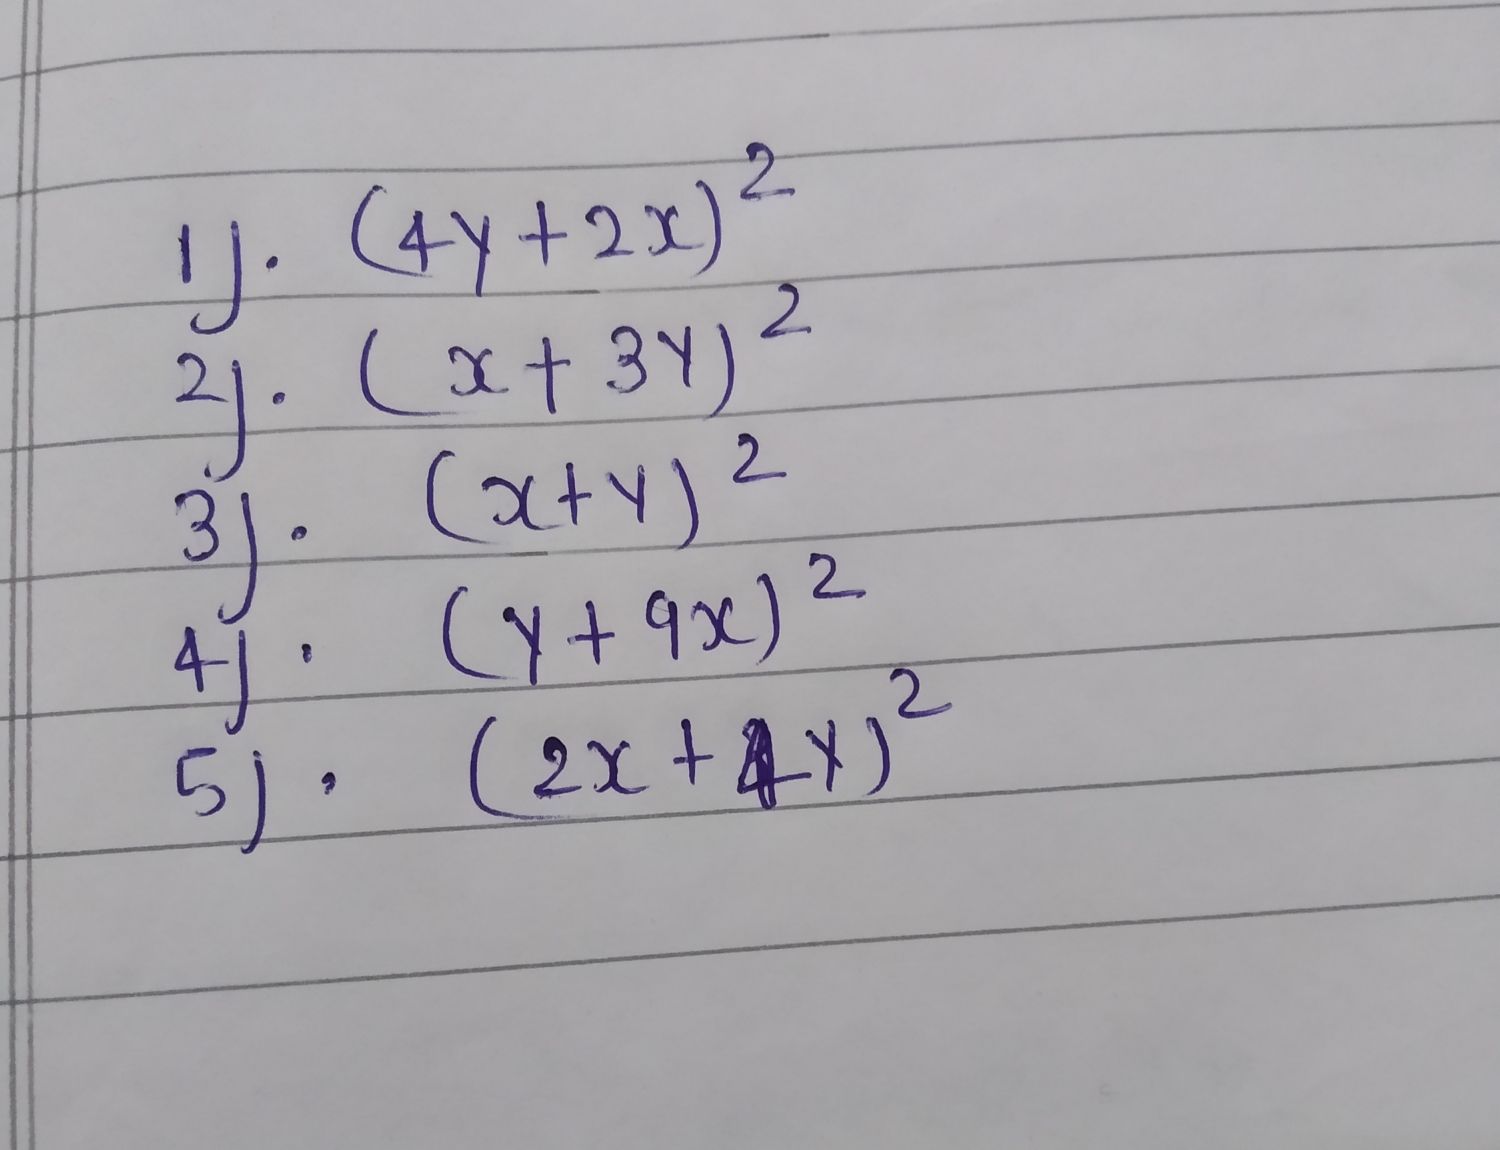 1). (4y+2x)²
2). (x+3y)²
3). (x+y)²
4). (y+9x)²
5). (2x+4y)²